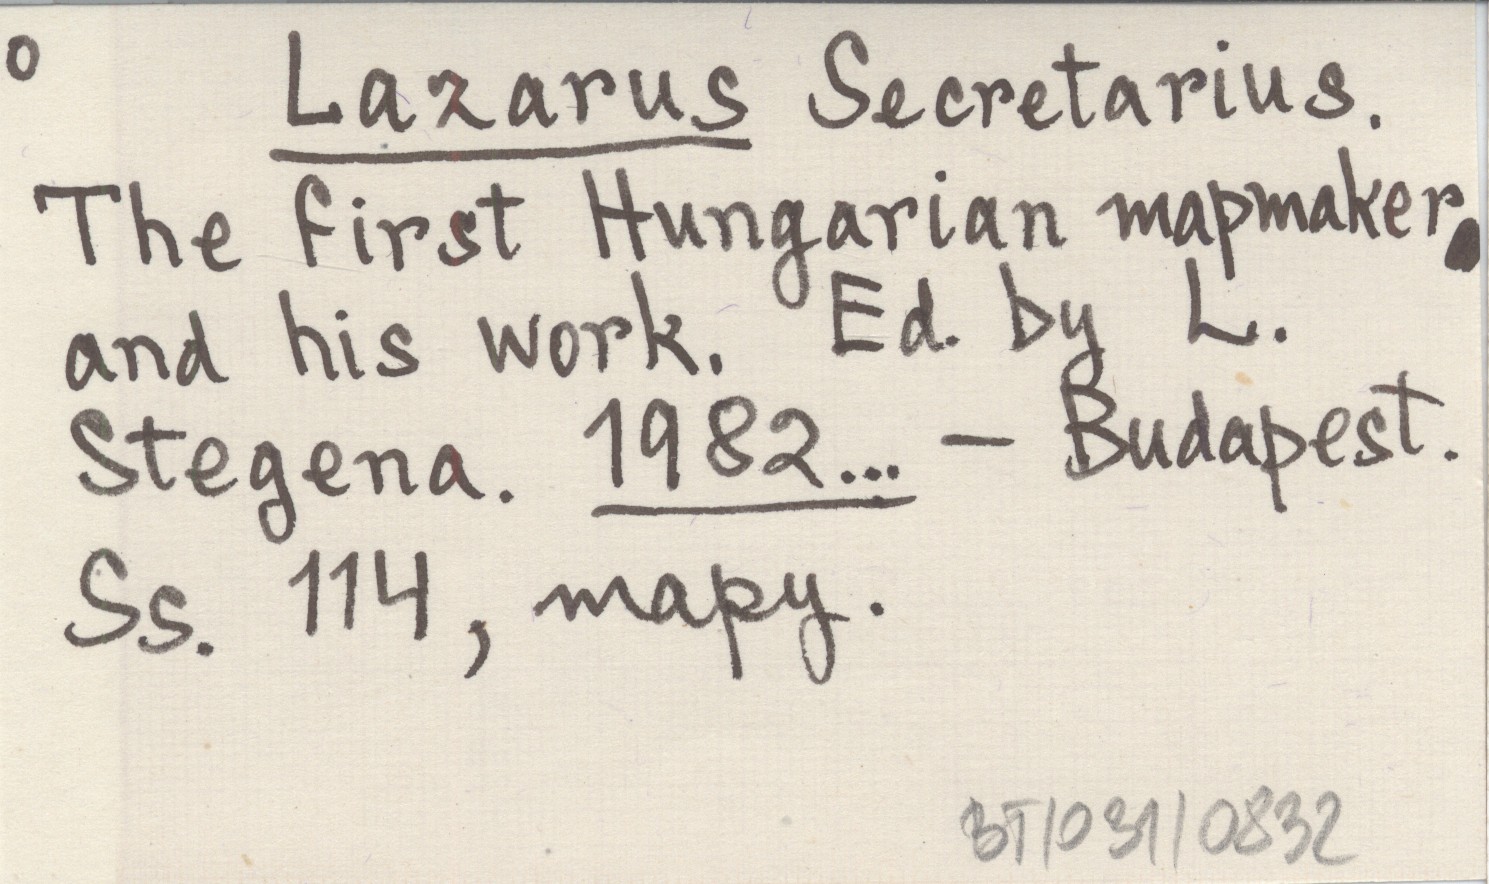 o
Lazarus Secretarius.
The first Hungarian mapmaker
and his work. Ed. by L.
Stegena. 1982... – Budapest.
Ss. 114, mapy.
BT/031/0832